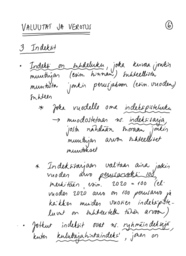 VALUUTAT JA VEROTUS 6
3 Indeksit
• Indeksi on tunnusluku, joka kuvaa jonkin
muuttujan (esim. hinnan) suhteellista
muutosta jonkin perusjakson (esim. vuoden)
suhteen
* Joka vuodelle oma indeksipisteluku
→ muodostetaan ns. indeksisarja,
josta nähdään, kuinka jonkin
muuttujan arvon suhteelliset
muutokset
* Indeksisarjaan valitaan aina jokin
vuoden arvo perusarvoksi 100,
merkitään esim. 2020 = 100 (eli
vuoden 2020 arvo on 100 perusarvo ja
kaikkien muiden vuosien indeksipiste-
luvut on suhteutettu tähän arvoon)
• Jotkut indeksit ovat ns. ryhmäindeksejä,
kuten kuluttajahintaindeksi, joka on